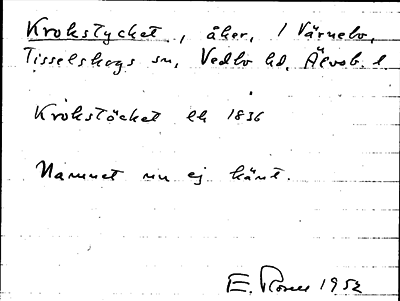 Krokstycket, åker, i Värnebo,
Tisselskogs sn, Vedbo hd, Älvsb. l.
Krokstöcket lh 1836
Namnet nu ej känt.
E. 1952